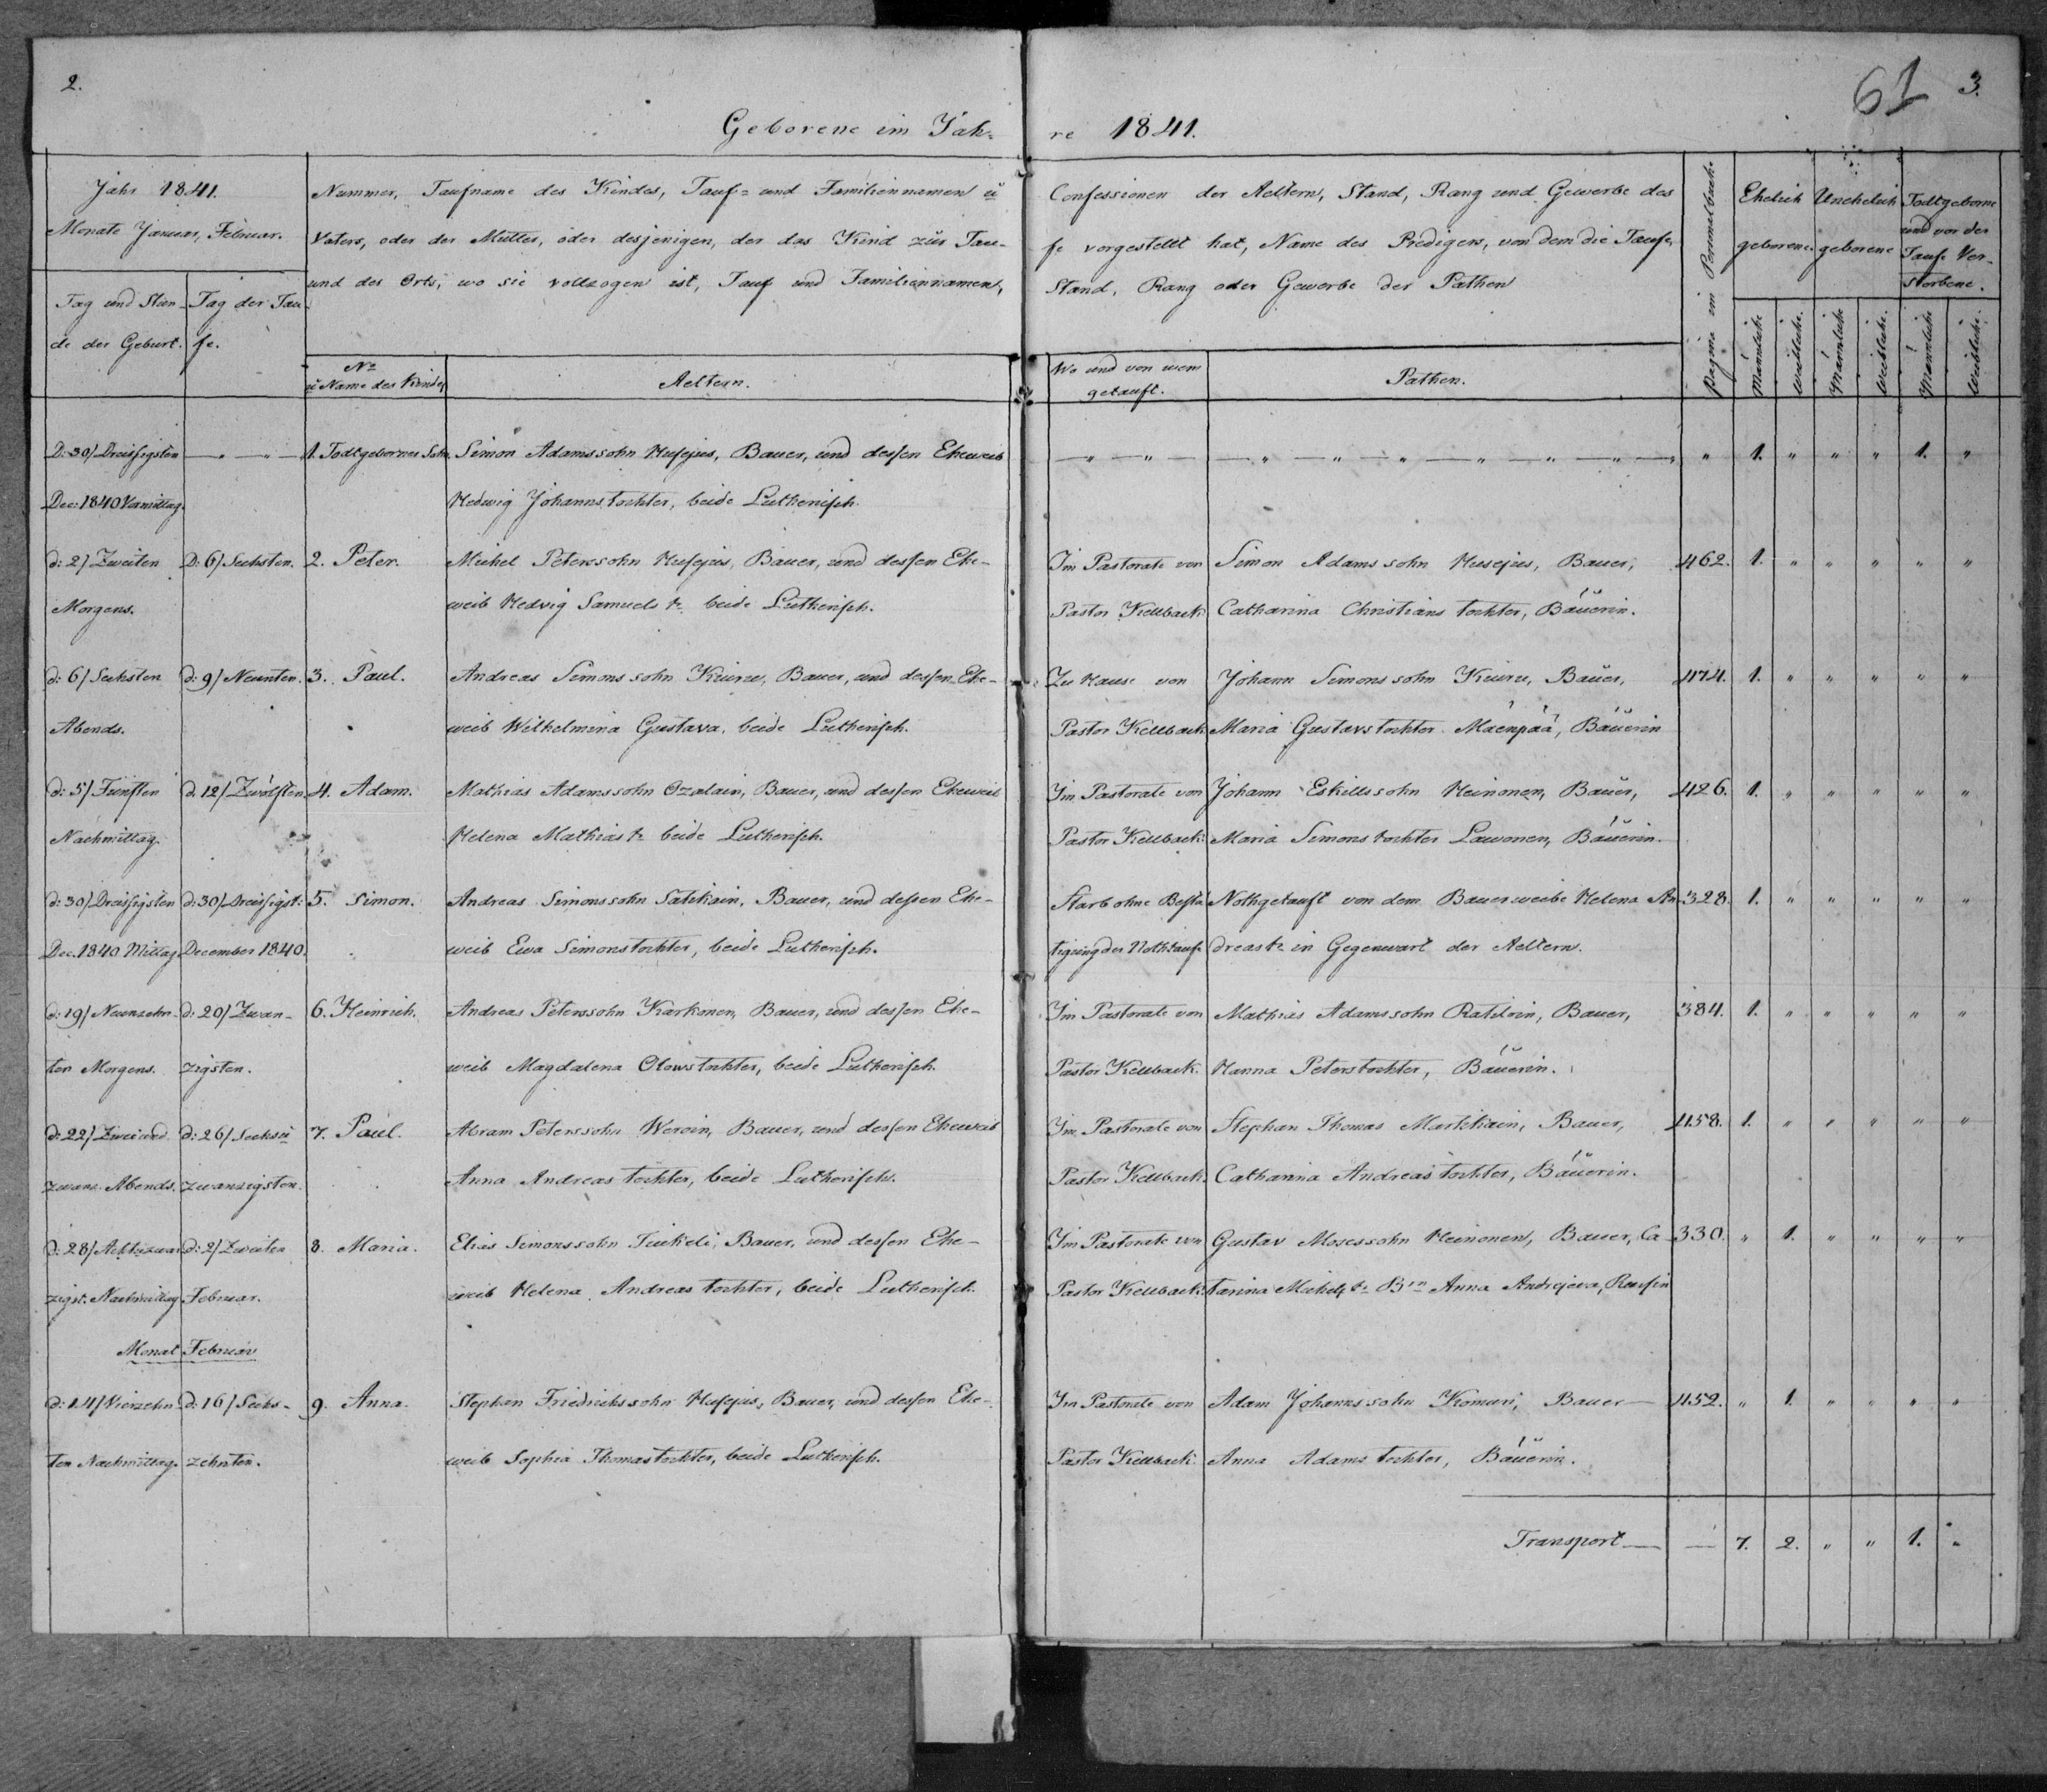 2.
61 3.
Geborene im Jah- re 1841.
Jahr 1841.
Monate Januar, Februar.
Tag und Stun-
de der Geburt.
Tag der Tau-
fe.
Nummer, Taufname des Kindes, Tauf- und Familiennamen u
Vaters, oder der Mutter, oder desjenigen, der das Kind zur Tau-
und des Orts, wo sie vollzogen ist, Tauf und Familiennamen,
No
u Name des Kindes
Aeltern.
Confessionen der Aeltern, Stand, Rang und Gewerbe des
fe vorgestellt hat, Name des Predigers, von dem die Taufe,
Stand, Rang oder Gewerbe der Pathen
Wo und von wem
getauft.
Pathen.
Pagina im Personalbuche
Ehelich
geborene.
Unehelich
geborene
Todtgeborne
und vor der
Taufe Ver-
storbene.
Männliche
Weibliche.
Männliche
Weibliche.
Männliche
Weibliche.
D: 30/ Dreissigsten — " — " — 1. Todtgeborner Sohn. Simon Adamssohn Husejus, Bauer, und dessen Eheweib — " — " — " — " — " — " — " — " — " " 1. " " " 1. "
Dec: 1840 Vormittag. Hedwig Johannstochter, beide Lutherisch.
d: 2/ Zweiten D: 6/ Sechsten. 2. Peter. Michel Peterssohn Husejus, Bauer, und dessen Ehe- Im Pastorate von Simon Adamssohn Husejus, Bauer, 462. 1. " " " " "
Morgens. weib Hedvig Samuels tr. beide Lutherisch. Pastor Kellback Catharina Christians tochter, Bäuerin.
d: 6/ Sechsten d: 9/ Neunten. 3. Paul. Andreas Simonssohn Kuiru, Bauer, und dessen Ehe- Zu Hause von Johann Simonssohn Kuiru, Bauer, 474. 1. " " " " "
Abends. weib Wilhelmina Gustava, beide Lutherisch. Pastor Kellback Maria Gustavstochter Mäenpää, Bäuerin
d: 5/ Fünften d. 12/ Zwölften. 4. Adam. Mathias Adamssohn Ozalain, Bauer, und dessen Eheweib Im Pastorate von Johann Eskillssohn Heinonen, Bauer, 426. 1. " " " " "
Nachmittag. Helena Mathias tr. beide Lutherisch. Pastor Kellback Maria Simons tochter Lawonen, Bäuerin.
d: 30/ Dreissigsten d: 30/ Dreissigst: 5. Simon. Andreas Simonssohn Satikain, Bauer, und dessen Ehe- Starb ohne Bestä Nothgetauft von dem Bauerweibe Helena An- 328. 1. " " " " "
Dec. 1840 Mittag December 1840. weib Ewa Simonstochter, beide Lutherisch. tigung der Nothtaufe dreas tr. in Gegenwart der Aeltern.
d: 19/ Neunzehn- d: 20/ Zwan- 6. Heinrich. Andreas Peterssohn Karkonen, Bauer, und dessen Ehe- Im Pastorate von Mathias Adamssohn Ratiloin, Bauer, 384. 1. " " " " "
ten Morgens. zigsten. weib Magdalena Olowstochter, beide Lutherisch. Pastor Kellback. Hanna Peterstochter, Bäuerin.
d: 22/ Zweiund d: 26/ Sechsu 7. Paul. Abram Peterssohn Weroin, Bauer, und dessen Eheweib Im Pastorate von Stephan Thomas Martikain, Bauer, 458. 1. " " " " "
zwanz. Abends. zwanzigsten. Anna Andreas tochter, beide Lutherisch. Pastor Kellback Catharina Andreas tochter, Bäuerin.
d: 28/ Achtzwan d: 2/ Zweiten 8. Maria. Elias Simonssohn Tiukeli, Bauer, und dessen Ehe- Im Pastorate von Gustav Mosessohn Heinonen, Bauer, Ca- 330. " 1. " " " "
zigst. Nachmittag Februar. weib Helena Andreas tochter, beide Lutherisch. Pastor Kellback tarina Michels tr. Bin Anna Andrejewa, Russin
Monat Februar
d: 14/ Vierzehn d: 16/ Sechs- 9. Anna. Stephan Friedrichssohn Husejus, Bauer, und dessen Ehe- Im Pastorate von Adam Johannssohn Komuri, Bauer — 452. " 1. " " " "
ten Nachmittag. zehnten. weib Sophia Thomastochter, beide Lutherisch. Pastor Kellback Anna Adams tochter, Bäuerin.
Transport — — 7. 2. " " 1. "